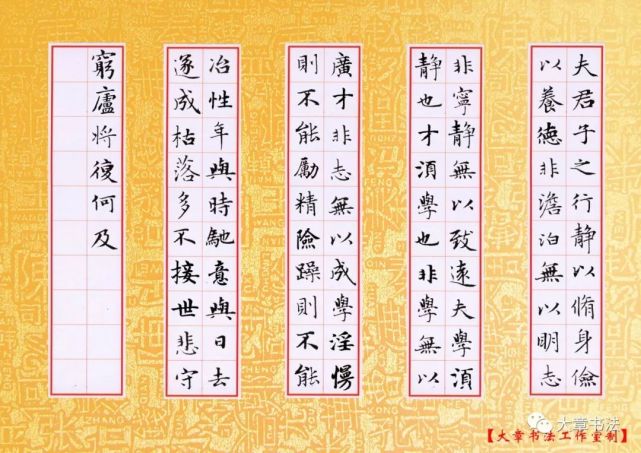 夫君子之行静以脩身儉
以養德非澹泊無以明志
非寧静無以致遠夫學須
静也才須學也非學無以
廣才非志無以成學淫慢
則不能勵精險躁則不能
冶性年與時馳意與日去
遂成枯落多不接世悲守
窮廬將復何及
大章书法
【大章书法工作室制】